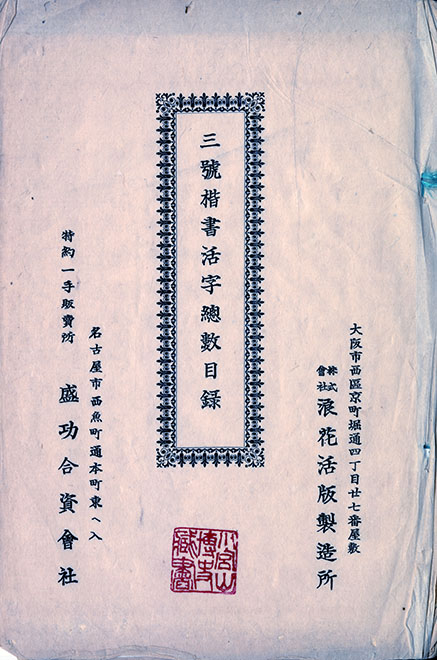 大阪市西區京町堀通四丁目廿七番屋敷
株式會社 浪花活版製造所
三號楷書活字總數目録
名古屋市西魚町通本町東ヘ入
特約一手販賣所 盛功合資會社
小宮山博史藏書